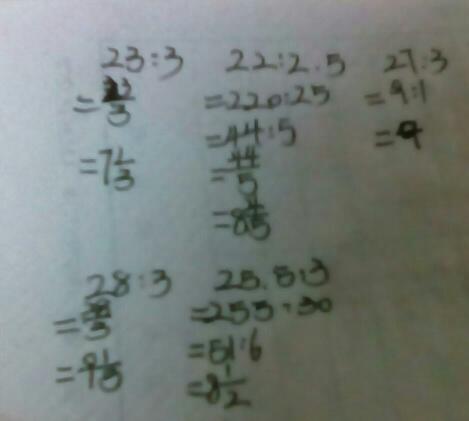 23:3 22:2.5 27:3
= 22/3 =220:25 =9:1
=7 1/3 =44:5 =9
= 44/5
=8 4/5
28:3 25.5:3
= 28/3 =255:30
=9 1/3 =51:6
=8 1/2